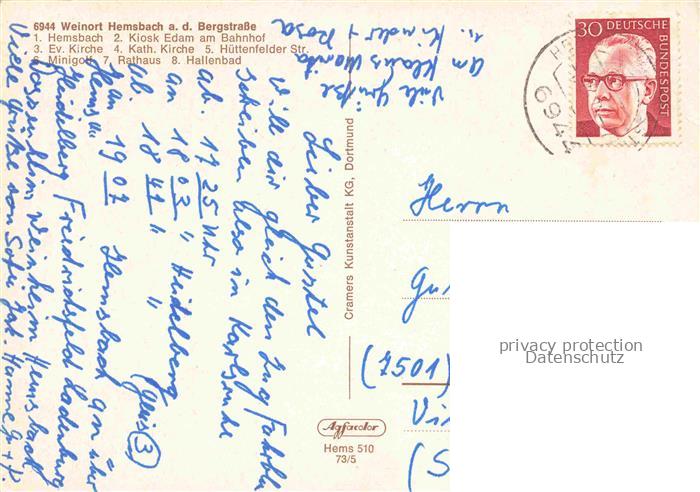 6944 Weinort Hemsbach a. d. Bergstraße
1. Hemsbach 2. Kiosk Edam am Bahnhof
3. Ev. Kirche 4. Kath. Kirche 5. Hüttenfelder Str.
6. Minigolf 7. Rathaus 8. Hallenbad
30 DEUTSCHE
BUNDESPOST
6944
Viele Grüße
an Klaus Marita
u. Kinder + Rosa
Lieber Gustel
will dir gleich den Zug
schreiben in Karlsruhe
ab. 17 25 Uhr
an 18 03 " Heidelberg
ab 18 41 " (Gleis 3)
an 19 07 Hemsbach an über
Heidelberg Friedrichsfeld Ladenburg
Weinheim Hemsbach
Viele Grüße von
Cramers Kunstanstalt KG, Dortmund
Herrn
(7501)
Agfacolor
Hems 510
73/5
privacy protection
Datenschutz